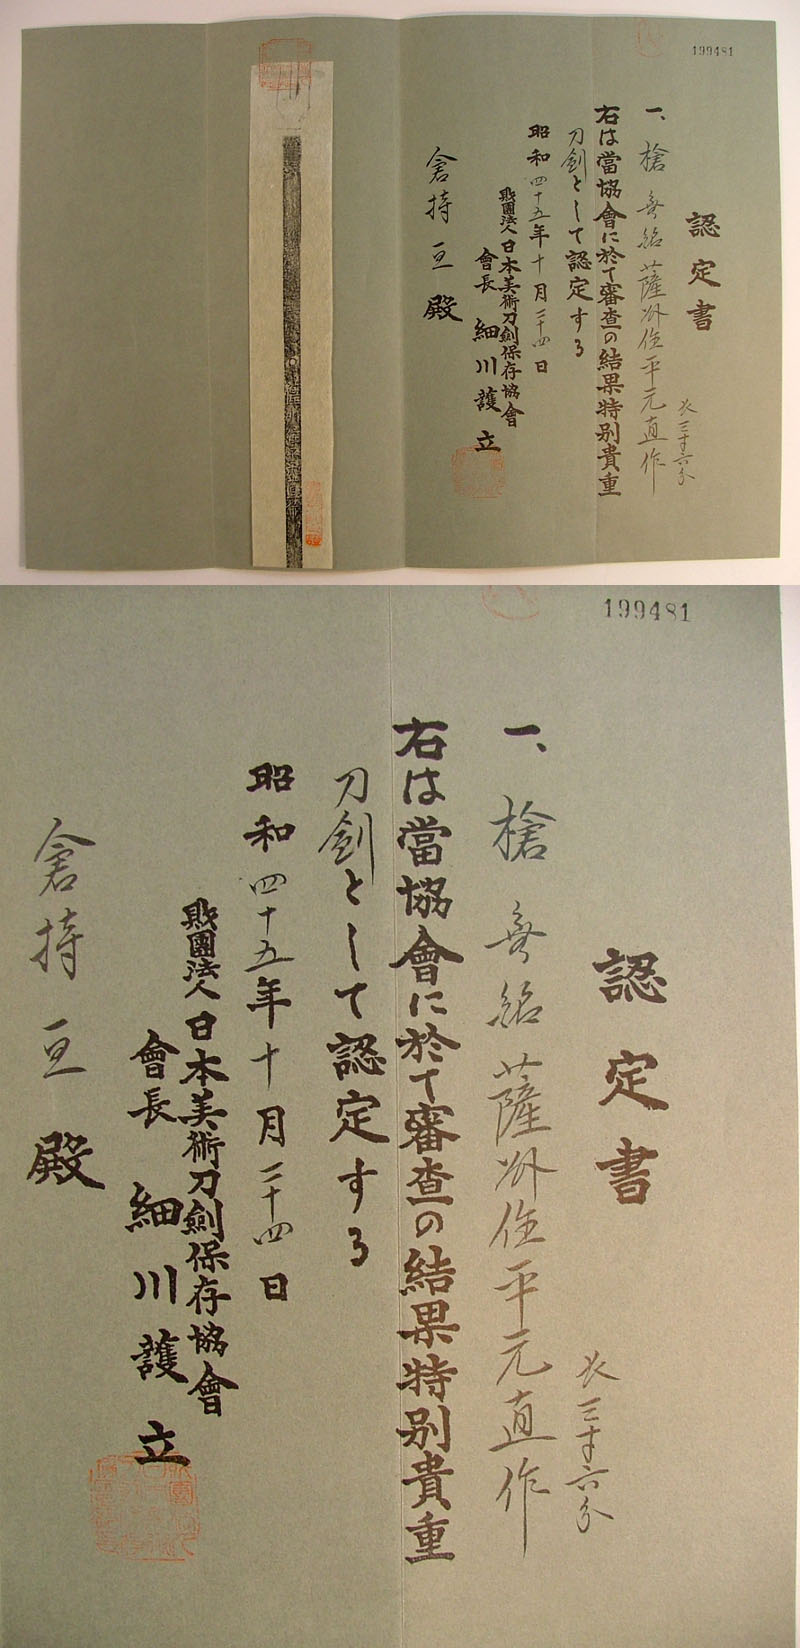 199481
認定書
長三寸六分
一、槍 無銘 薩州住平元直作
右は當協會に於て審査の結果特別貴重
刀劍として認定する
昭和四十五年十月二十四日
財團法人日本美術刀劍保存協會
會長 細川護立
倉持亘殿
199481
認定書
長三寸六分
一、槍 無銘 薩州住平元直作
右は當協會に於て審査の結果特別貴重
刀劍として認定する
昭和四十五年十月二十四日
財團法人日本美術刀劍保存協會
會長 細川護立
倉持亘殿